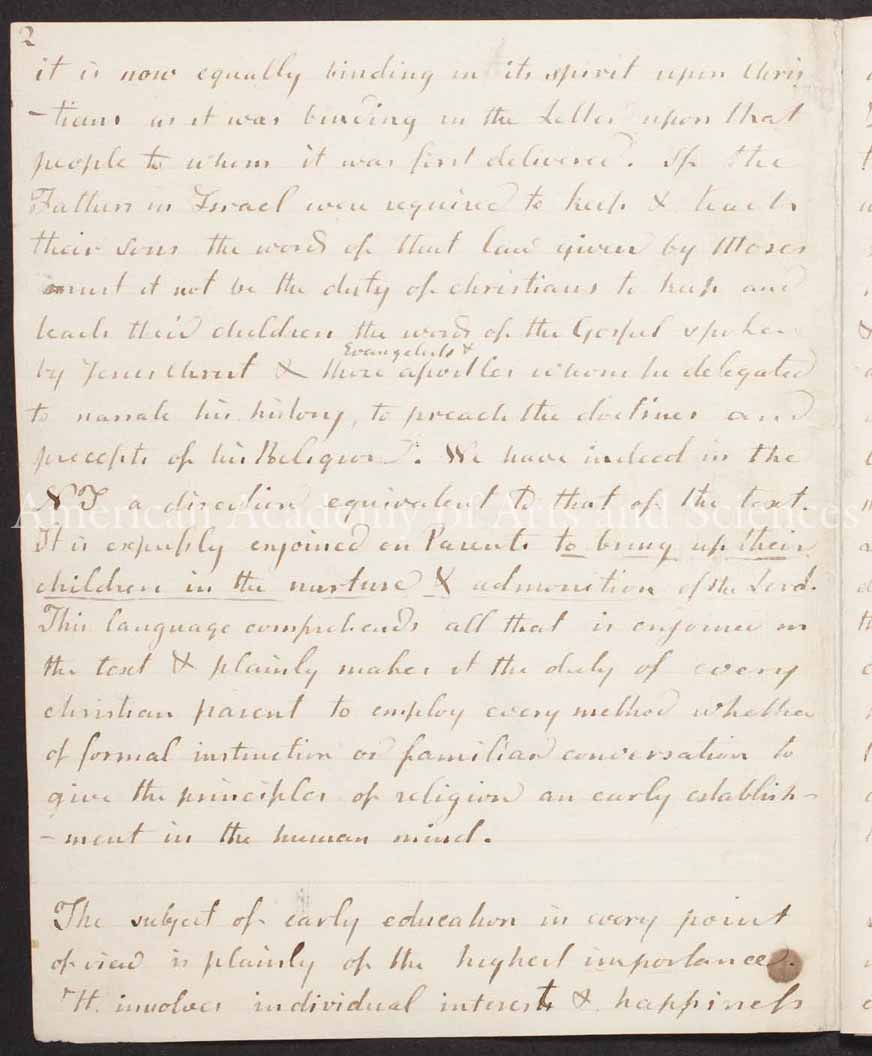 2
it is now equally binding in its spirit upon Chris
-tians as it was binding in the Letter upon that
people to whom it was first delivered. If the
Fathers in Israel were required to keep & teach
their sons the words of that law given by Moses
must it not be the duty of christians to keep and
teach their children the words of the Gospel spoken
Evangelists &
by Jesus Christ & those apostles whom he delegated
to narrate his history, to preach the doctines and
precepts of his Religion. We have indeed in the
N T a direction equivalent to that of the text.
American Academy of Arts and Sciences
It is expressly enjoined on Parents to bring up their
children in the nurture & admonition of the Lord.
This language comprehends all that is enjoined in
the text & plainly makes it the duty of every
christian parent to employ every method whether
of formal instruction or familiar conversation to
give the principles of religion an early establish-
-ment in the human mind.
The subject of early education in every point
of view is plainly of the highest importance.
It involves individual interest & happiness